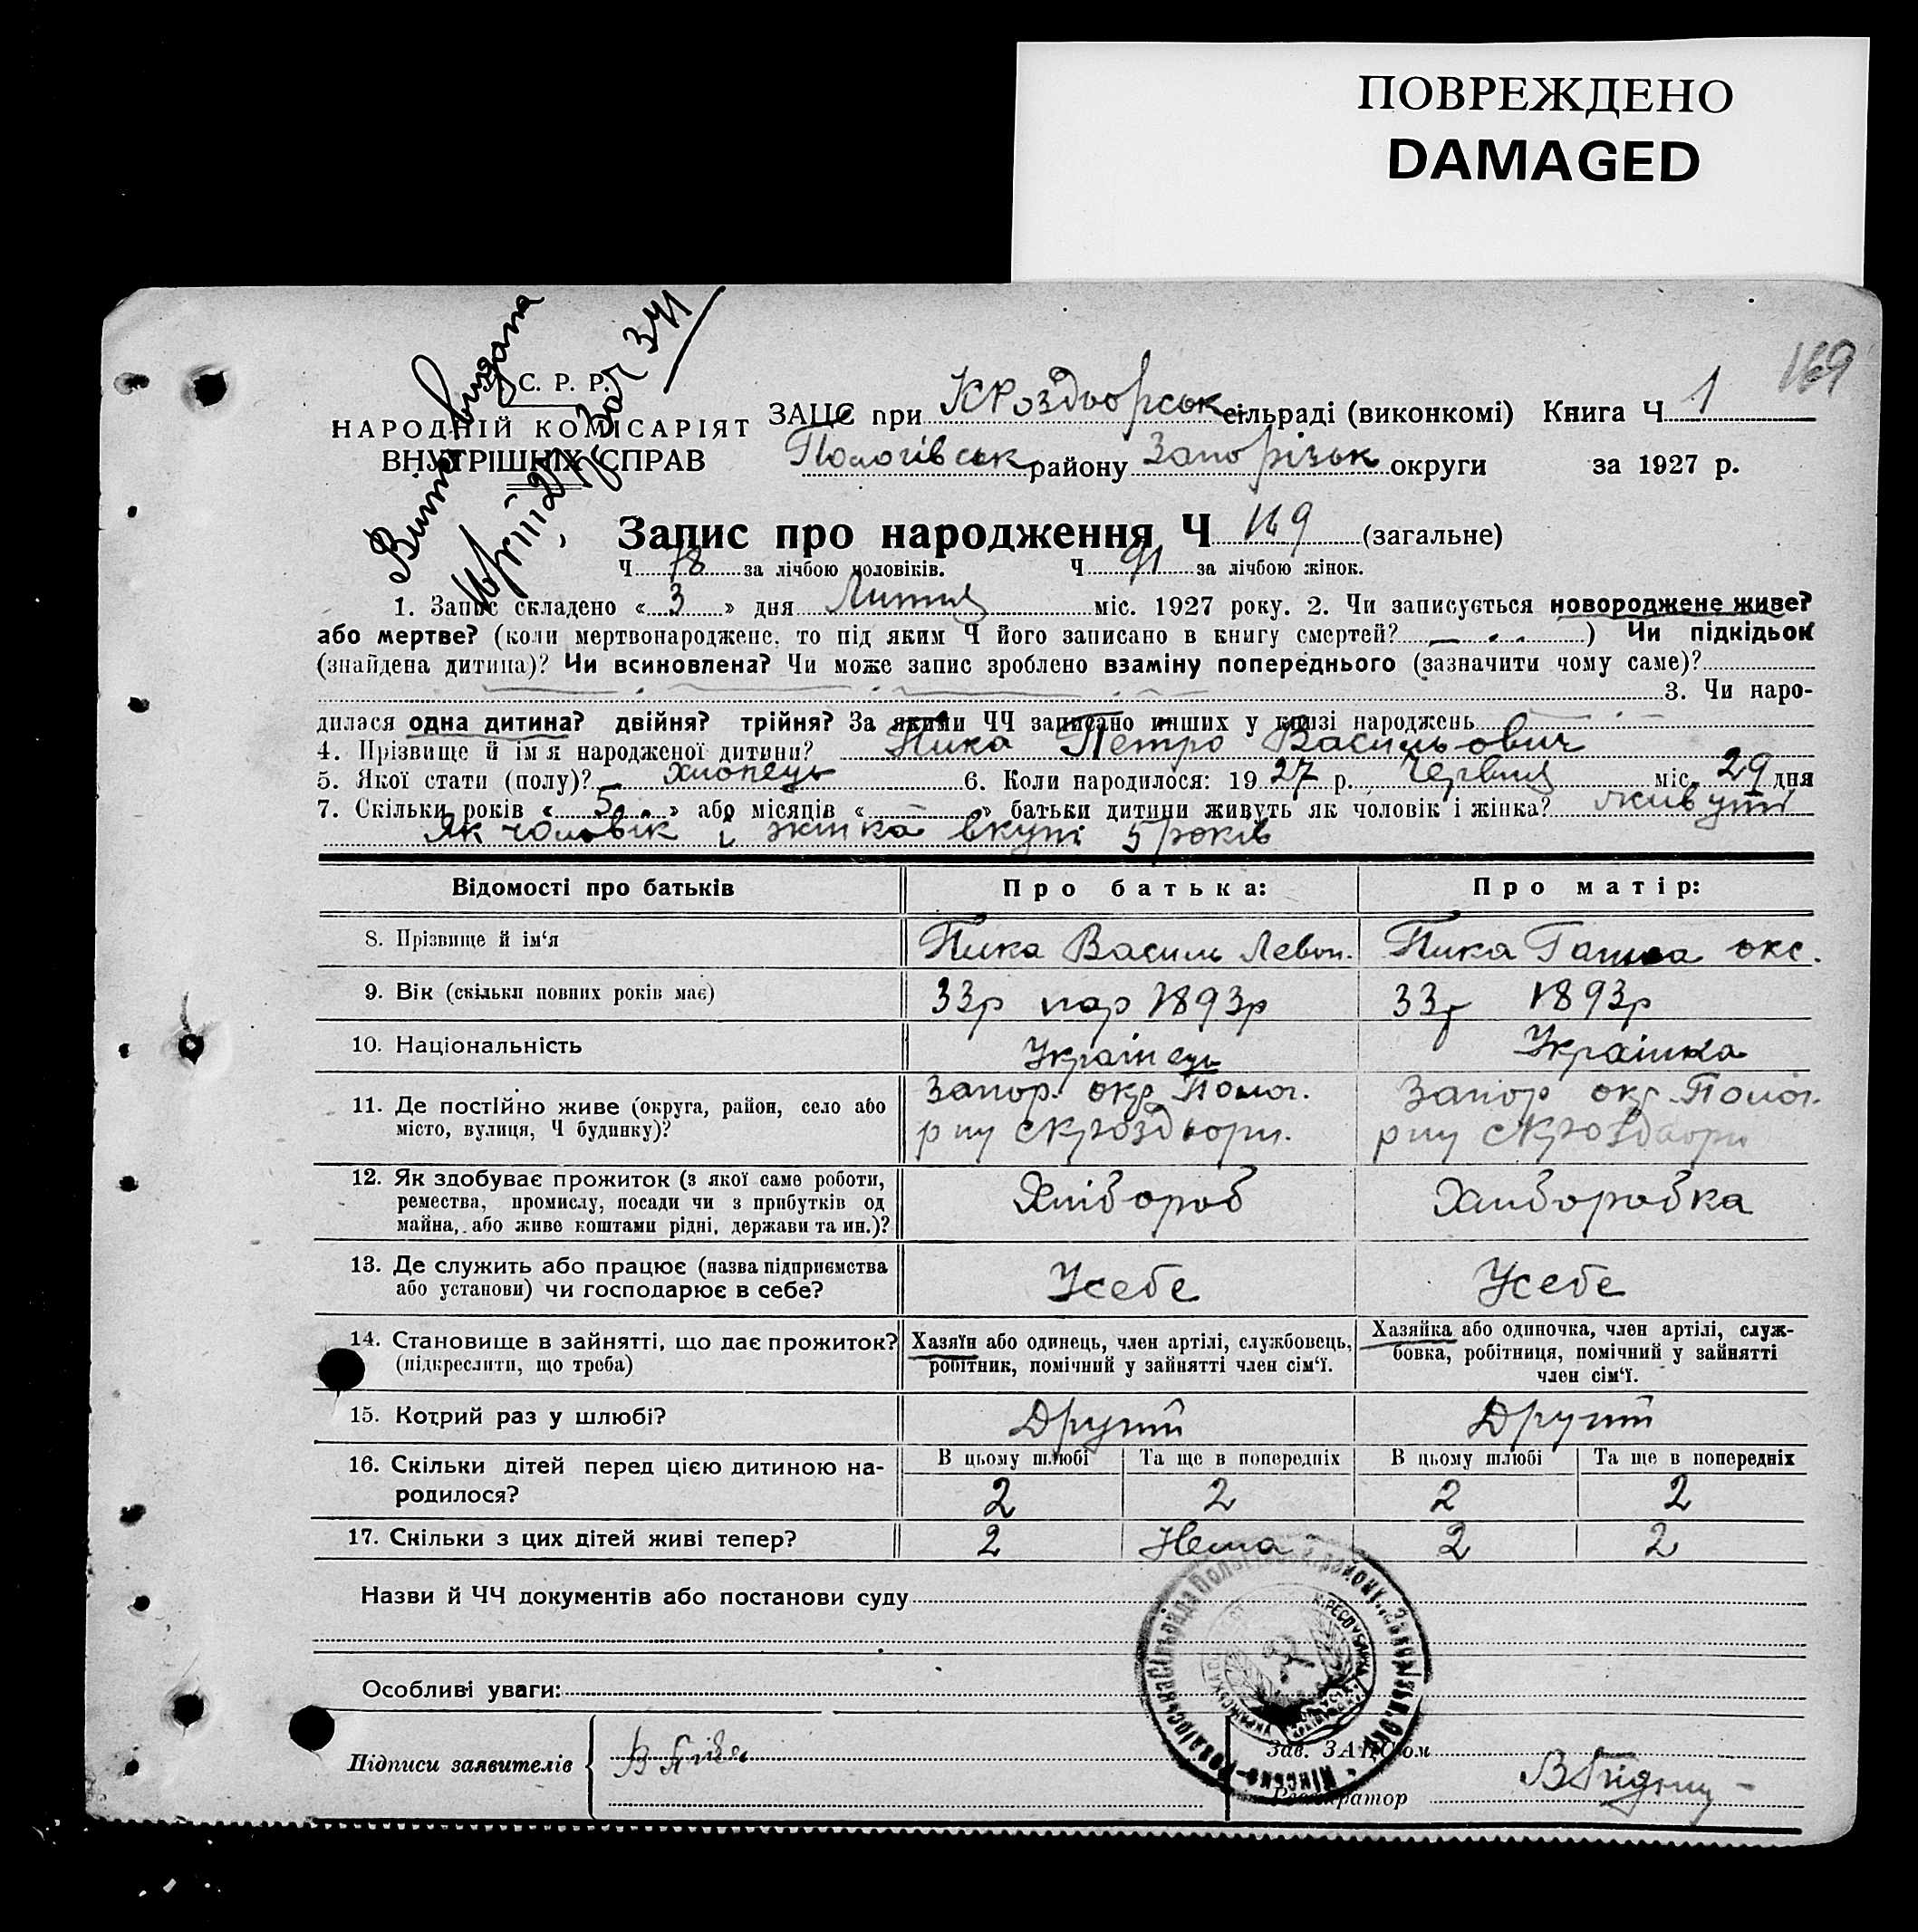 ПОВРЕЖДЕНО
DAMAGED
169
С. Р. Р.
НАРОДНІЙ КОМІСАРІЯТ
ВНУТРІШНІХ СПРАВ
Витяг видана
за Ч 341
ЗАЦС при КРоздорськ сільраді (виконкомі) Книга Ч 1
Пологівськ району Запорізьк округи за 1927 р.
Запис про народження Ч 169 (загальне)
Ч 78 за лічбою чоловіків. Ч 91 за лічбою жінок.
1. Запис складено « 3 » дня Липня міс. 1927 року. 2. Чи записується новороджене живе?
або мертве? (коли мертвонароджене, то під яким Ч його записано в книгу смертей? ) Чи підкідьок
(знайдена дитина)? Чи всиновлена? Чи може запис зроблено взаміну попереднього (зазначити чому саме)?
3. Чи наро-
дилася одна дитина? двійня? трійня? За якими ЧЧ записано инших у книзі народжень
4. Прізвище й ім я народженої дитини? Пика Петро Васильович
5. Якої стати (полу)? хлопець 6. Коли народилося: 19 27 р. Червня міс. 29 дня
7. Скільки років « 5 » або місяців « — » батьки дитини живуть як чоловік і жінка? живуть
як чоловік і жінка вкупі 5 років
Відомості про батьків Про батька: Про матір:
8. Прізвище й ім'я Пика Василь Левон. Пика Ганна окс.
9. Вік (скільки повних років має) 33р нар 1893р 33р 1893р
10. Національність Украінець Украінка
11. Де постійно живе (округа, район, село або Запор. окр. Полог. Запор окр. Полог.
місто, вулиця, Ч будинку)? р ну с Кроздори. р ну с Кроздори
12. Як здобуває прожиток (з якої саме роботи, Хлібороб Хліборобка
ремества, промислу, посади чи з прибутків од
майна, або живе коштами рідні, держави та ин.)?
13. Де служить або працює (назва підприємства Усебе Усебе
або установи) чи господарює в себе?
14. Становище в зайнятті, що дає прожиток? Хазяїн або одинець, член артілі, службовець, Хазяйка або одиночка, член артілі, служ-
(підкреслити, що треба) робітник, помічний у зайнятті член сім'ї. бовка, робітниця, помічний у зайнятті
член сім'ї.
15. Котрий раз у шлюбі? Другий Другий
В цьому шлюбі Та ще в попередніх В цьому шлюбі Та ще в попередніх
16. Скільки дітей перед цією дитиною на-
родилося? 2 2 2 2
17. Скільки з цих дітей живі тепер? 2 Нема 2 2
Назви й ЧЧ документів або постанови суду
Особливі уваги:
Підписи заявителів
Зав. ЗАЦСом
Реєстратор